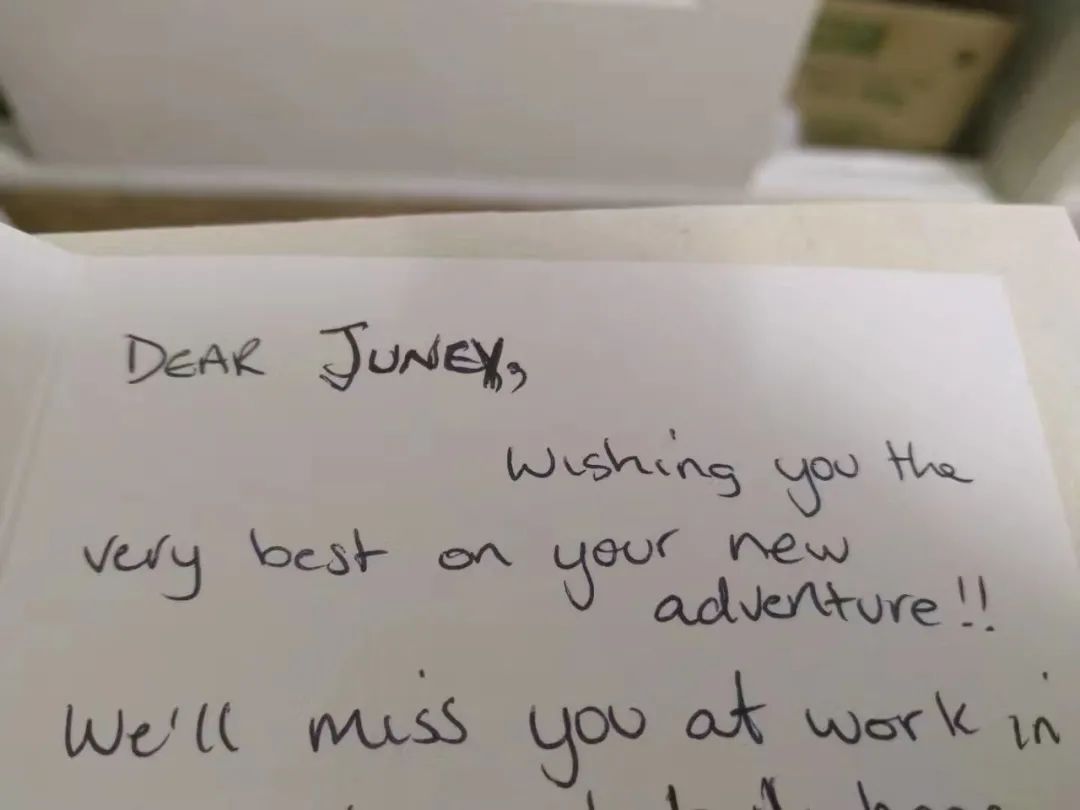 DEAR JUNEY,
Wishing you the
very best on your new
adventure!!
We'll miss you at work in